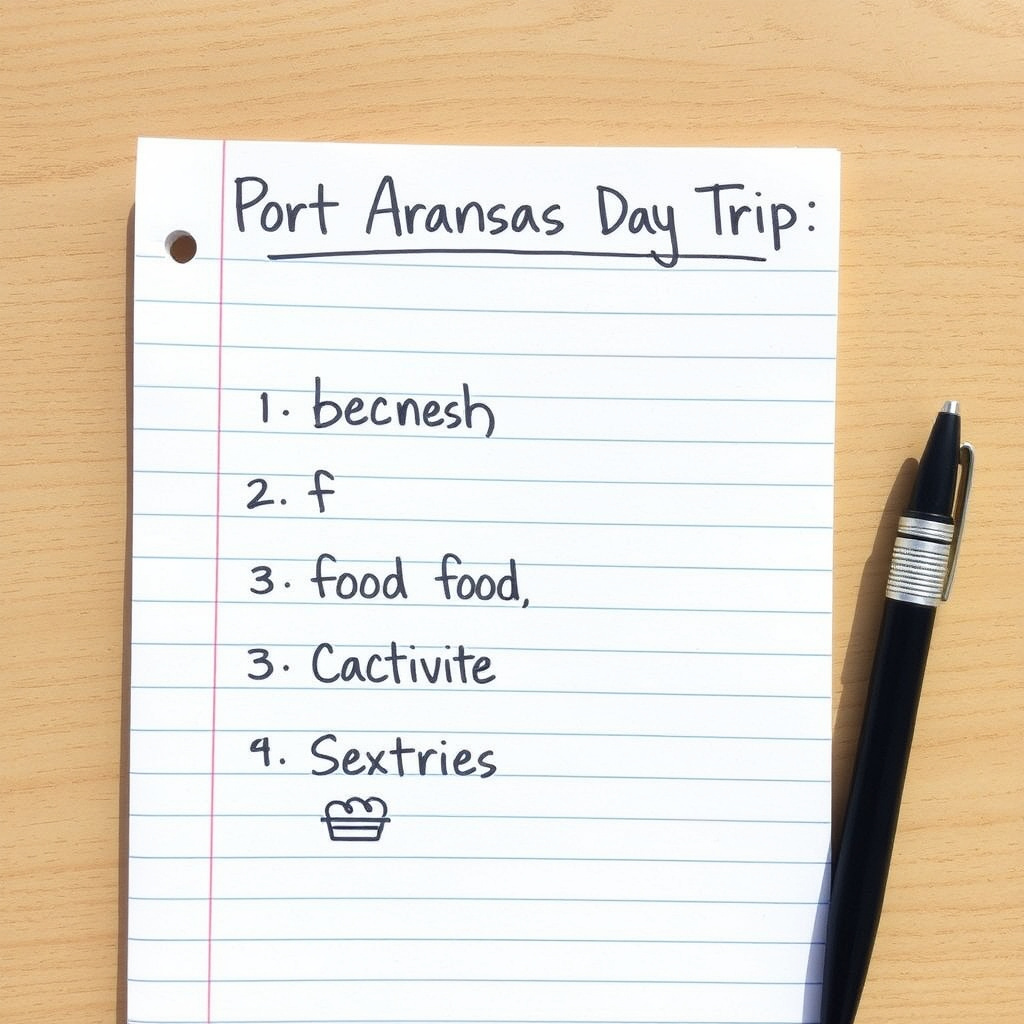 Port Aransas Day Trip:
1. becnesh
2. f
3. food food,
3. Cactivite
4. Sextries